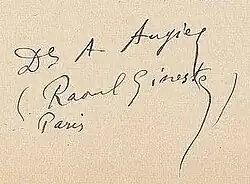 Dr A Augier
(Raoul Gineste)
Paris